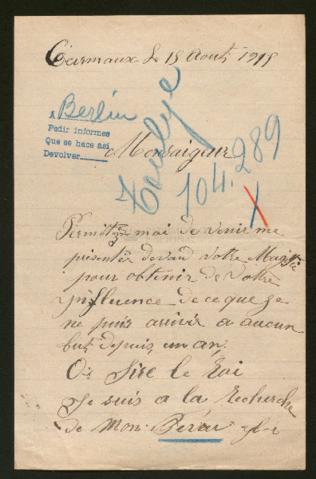 Carmaux le 15 Août 1915
A Berlin
Pedir informes
Que se hace así
Devolver
Monsaigneur
104.289
X
Permetez moi de venir me
présenter devand votre Majesté
pour obtenir de votre
influence de ce que je
ne puis arriver a aucun
but depuis un an
Oi Sire le Roi
Je suis a la recherche
de Mon